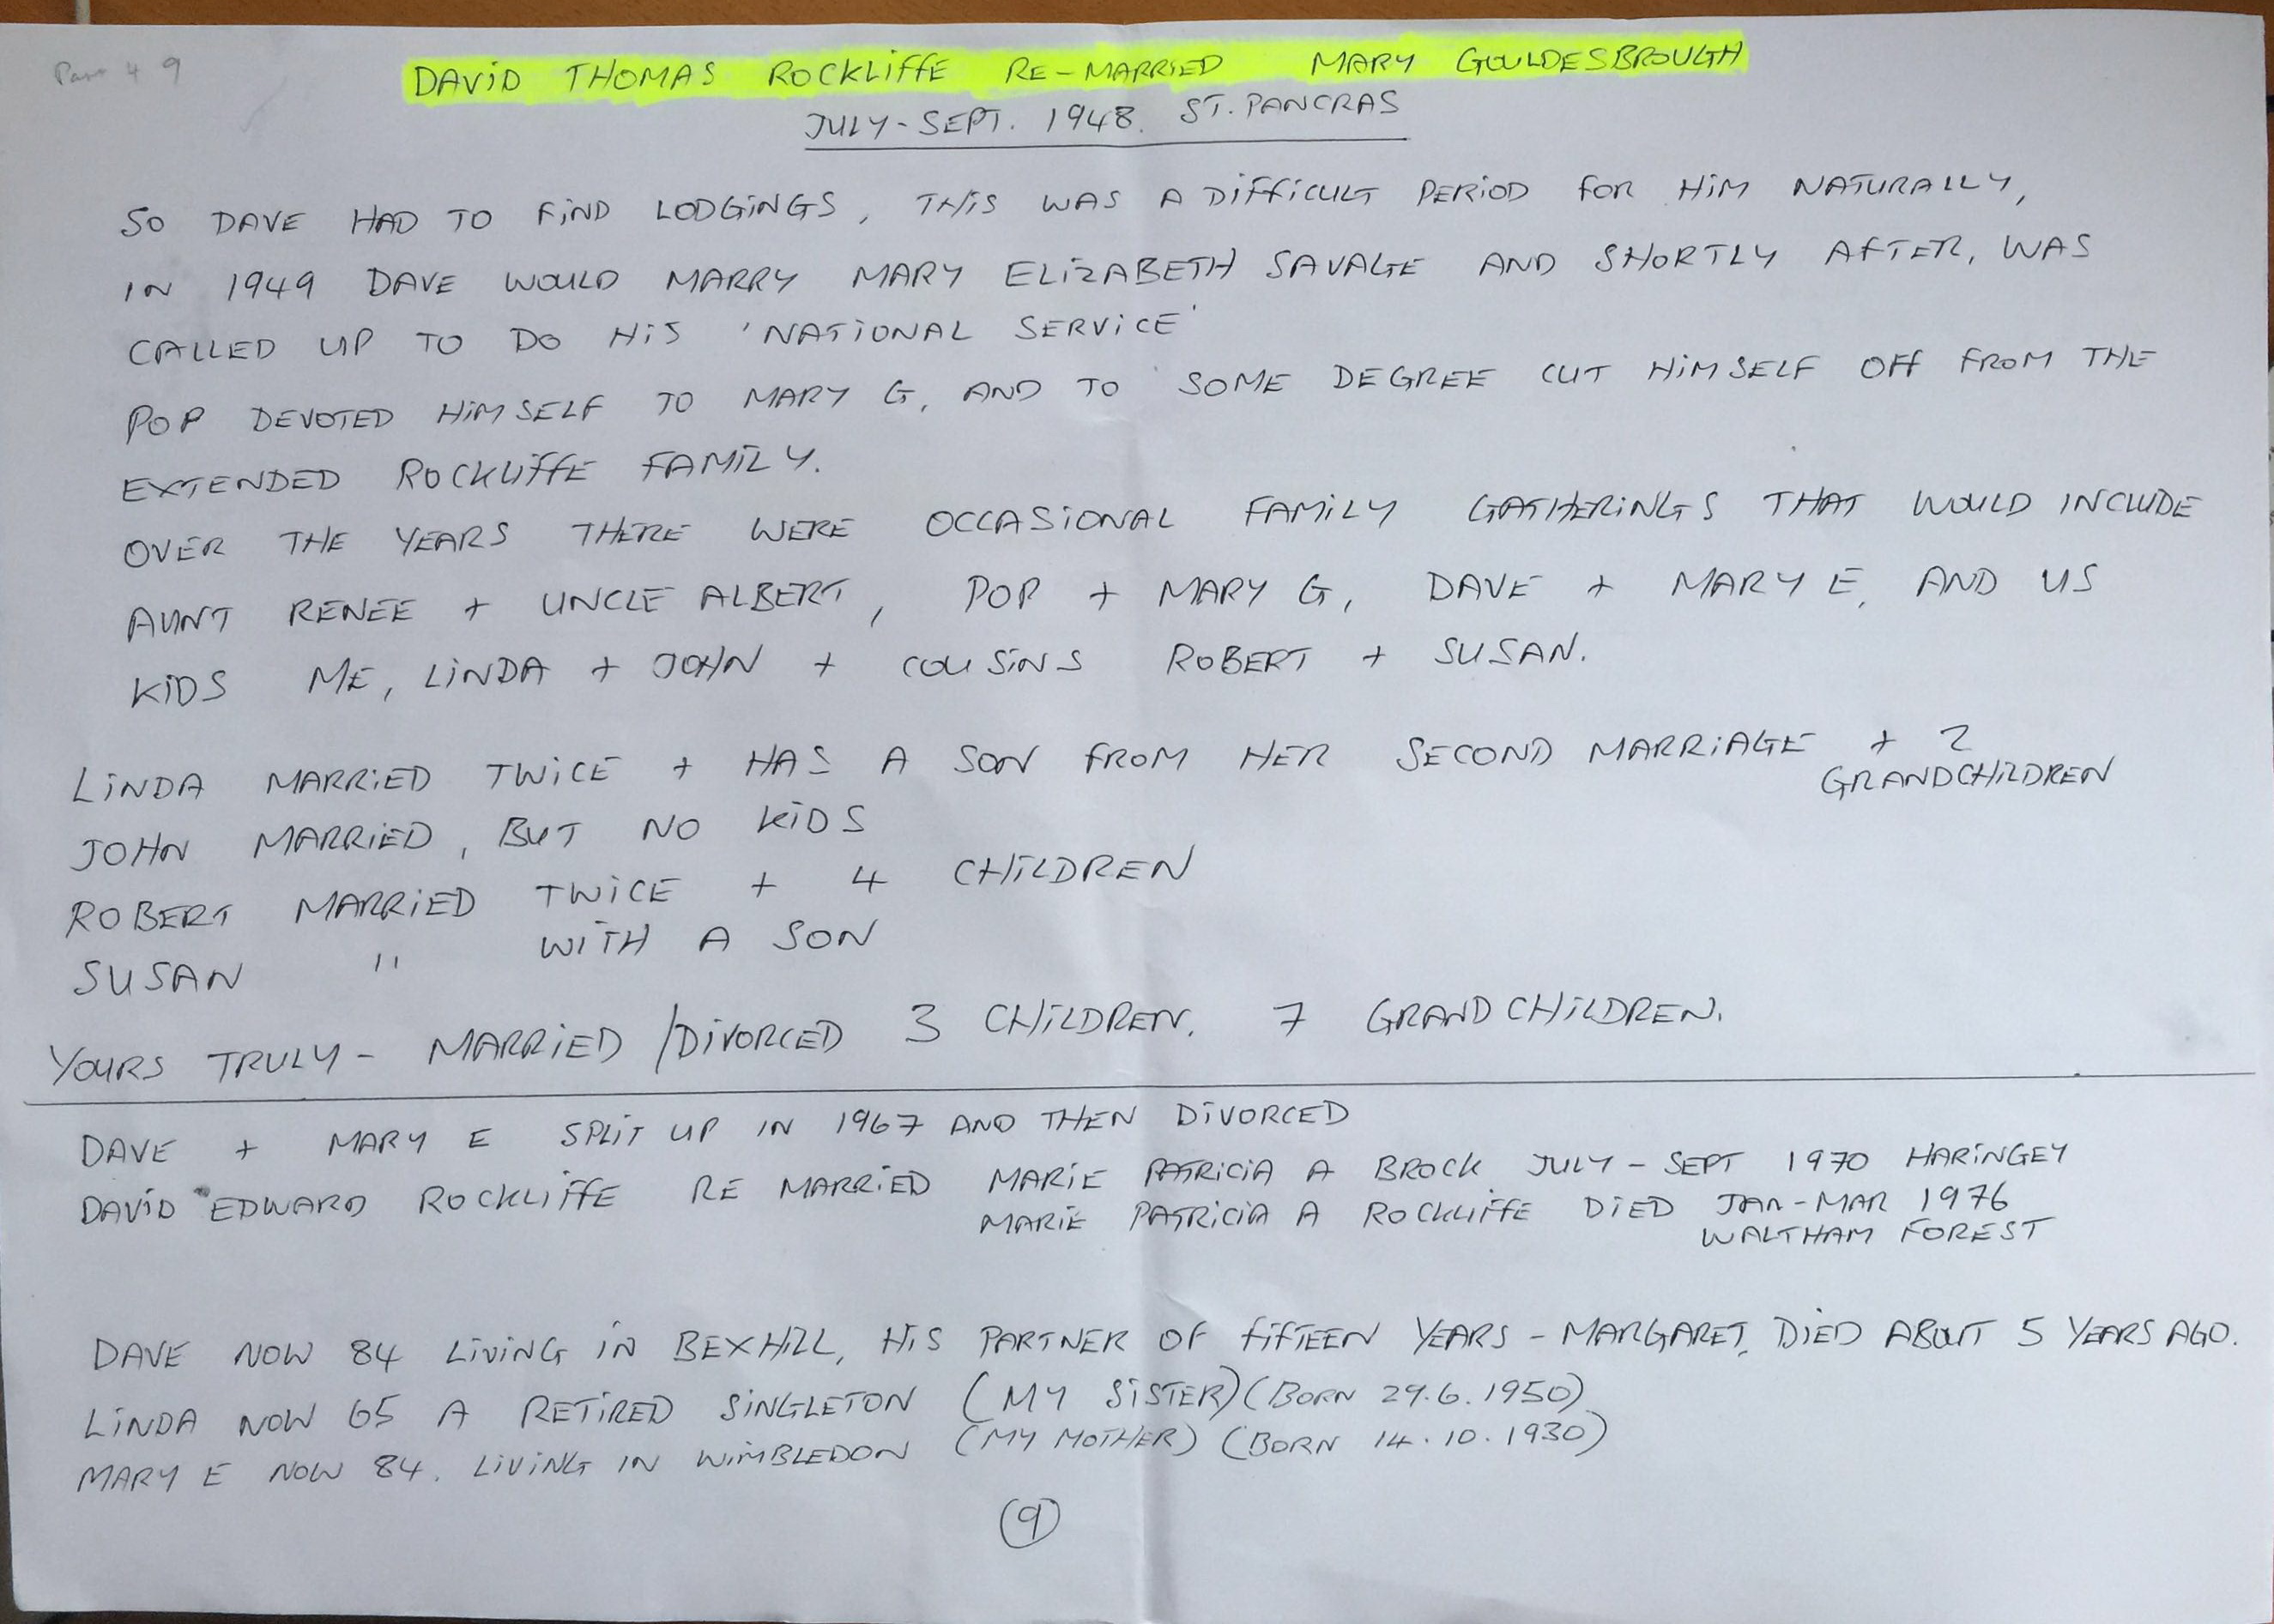 Part 4 9
DAVID THOMAS ROCKLIFFE RE-MARRIED MARY GOULDESBROUGH
JULY-SEPT. 1948. ST. PANCRAS
SO DAVE HAD TO FIND LODGINGS, THIS WAS A DIFFICULT PERIOD FOR HIM NATURALLY,
IN 1949 DAVE WOULD MARRY MARY ELIZABETH SAVAGE AND SHORTLY AFTER, WAS
CALLED UP TO DO HIS 'NATIONAL SERVICE'
POP DEVOTED HIMSELF TO MARY G, AND TO SOME DEGREE CUT HIMSELF OFF FROM THE
EXTENDED ROCKLIFFE FAMILY.
OVER THE YEARS THERE WERE OCCASIONAL FAMILY GATHERINGS THAT WOULD INCLUDE
AUNT RENEE + UNCLE ALBERT, POP + MARY G, DAVE + MARY E, AND US
KIDS ME, LINDA + JOHN + COUSINS ROBERT + SUSAN.
LINDA MARRIED TWICE + HAS A SON FROM HER SECOND MARRIAGE + 2
GRANDCHILDREN
JOHN MARRIED, BUT NO KIDS
ROBERT MARRIED TWICE + 4 CHILDREN
SUSAN " WITH A SON
YOURS TRULY - MARRIED/DIVORCED 3 CHILDREN. 7 GRANDCHILDREN.
DAVE + MARY E SPLIT UP IN 1967 AND THEN DIVORCED
DAVID EDWARD ROCKLIFFE RE MARRIED MARIE PATRICIA A BROCK JULY-SEPT 1970 HARINGEY
MARIE PATRICIA A ROCKLIFFE DIED JAN-MAR 1976
WALTHAM FOREST
DAVE NOW 84 LIVING IN BEXHILL, HIS PARTNER OF FIFTEEN YEARS - MARGARET, DIED ABOUT 5 YEARS AGO.
LINDA NOW 65 A RETIRED SINGLETON (MY SISTER) (BORN 29.6.1950)
MARY E NOW 84. LIVING IN WIMBLEDON (MY MOTHER) (BORN 14.10.1930)
9